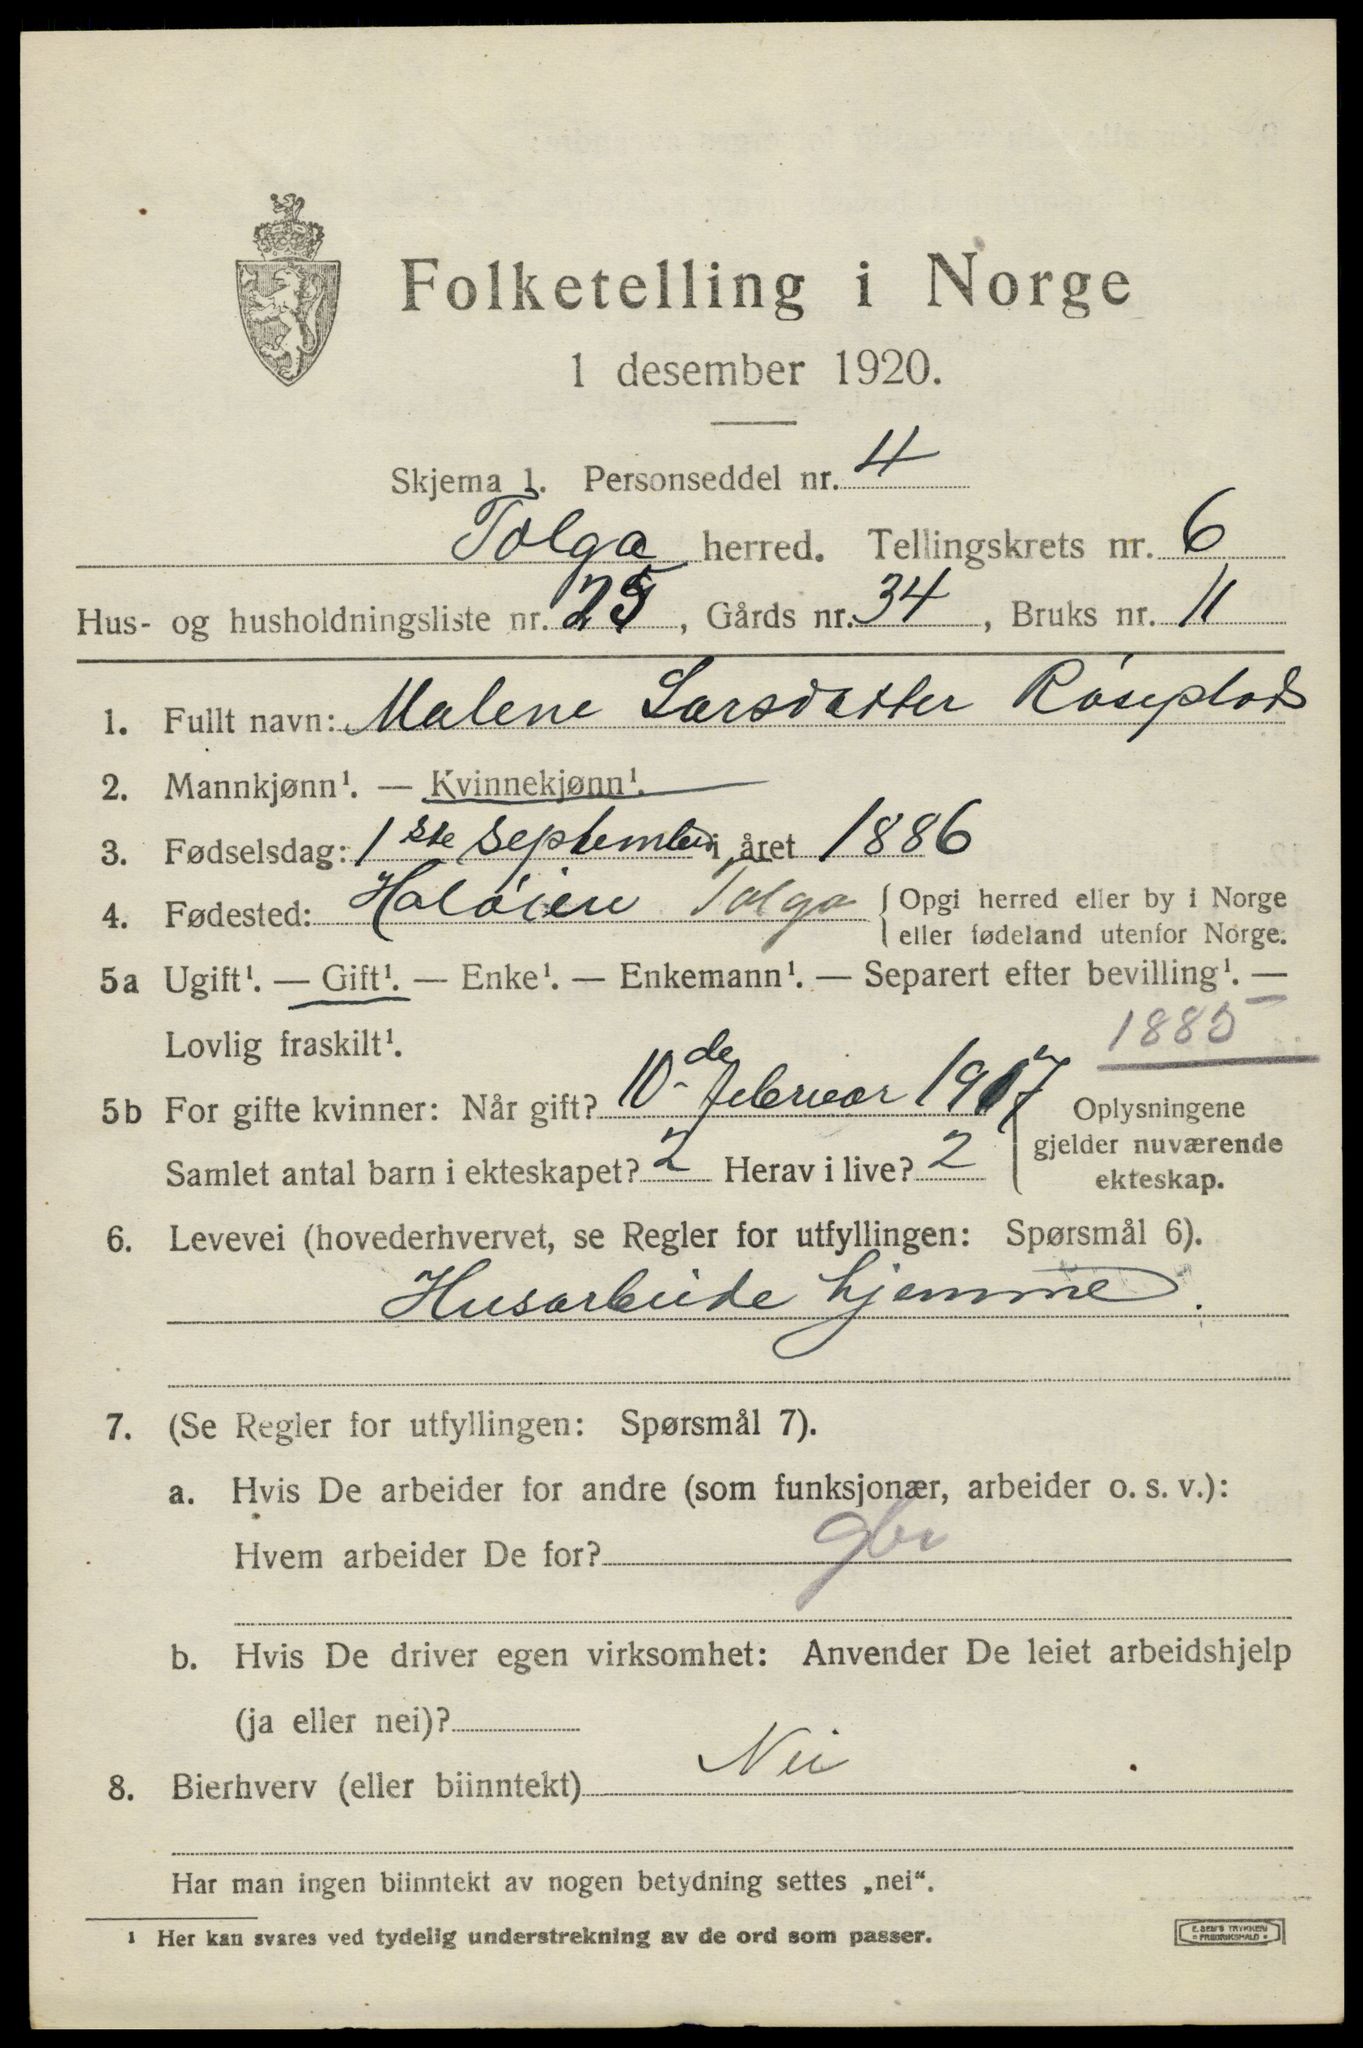 Folketelling i Norge
1 desember 1920.
Skjema 1. Personseddel nr. 4
Tolga herred. Tellingskrets nr. 6
Hus- og husholdningsliste nr. 25, Gårds nr. 34, Bruks nr. 11
1. Fullt navn: Malene Larsdatter
2. Mannkjønn¹. — Kvinnekjønn¹.
3. Fødselsdag: 1ste september i året 1886
4. Fødested: Haløien Tolga { Opgi herred eller by i Norge
eller fødeland utenfor Norge.
5a Ugift¹. — Gift¹. — Enke¹. — Enkemann¹. — Separert efter bevilling¹. —
Lovlig fraskilt¹. 1885
5b For gifte kvinner: Når gift? 10de februar 1917
Samlet antal barn i ekteskapet? 2 Herav i live? 2
Oplysningene
gjelder nuværende
ekteskap.
6. Levevei (hovederhvervet, se Regler for utfyllingen: Spørsmål 6).
Husarbeide hjemme.
7. (Se Regler for utfyllingen: Spørsmål 7).
a. Hvis De arbeider for andre (som funksjonær, arbeider o. s. v.):
Hvem arbeider De for? gbr
b. Hvis De driver egen virksomhet: Anvender De leiet arbeidshjelp
(ja eller nei)?
8. Bierhverv (eller biinntekt) Nei
Har man ingen biinntekt av nogen betydning settes „nei“.
¹ Her kan svares ved tydelig understrekning av de ord som passer.
E. SEM'S TRYKKERI
FREDRIKSHALD